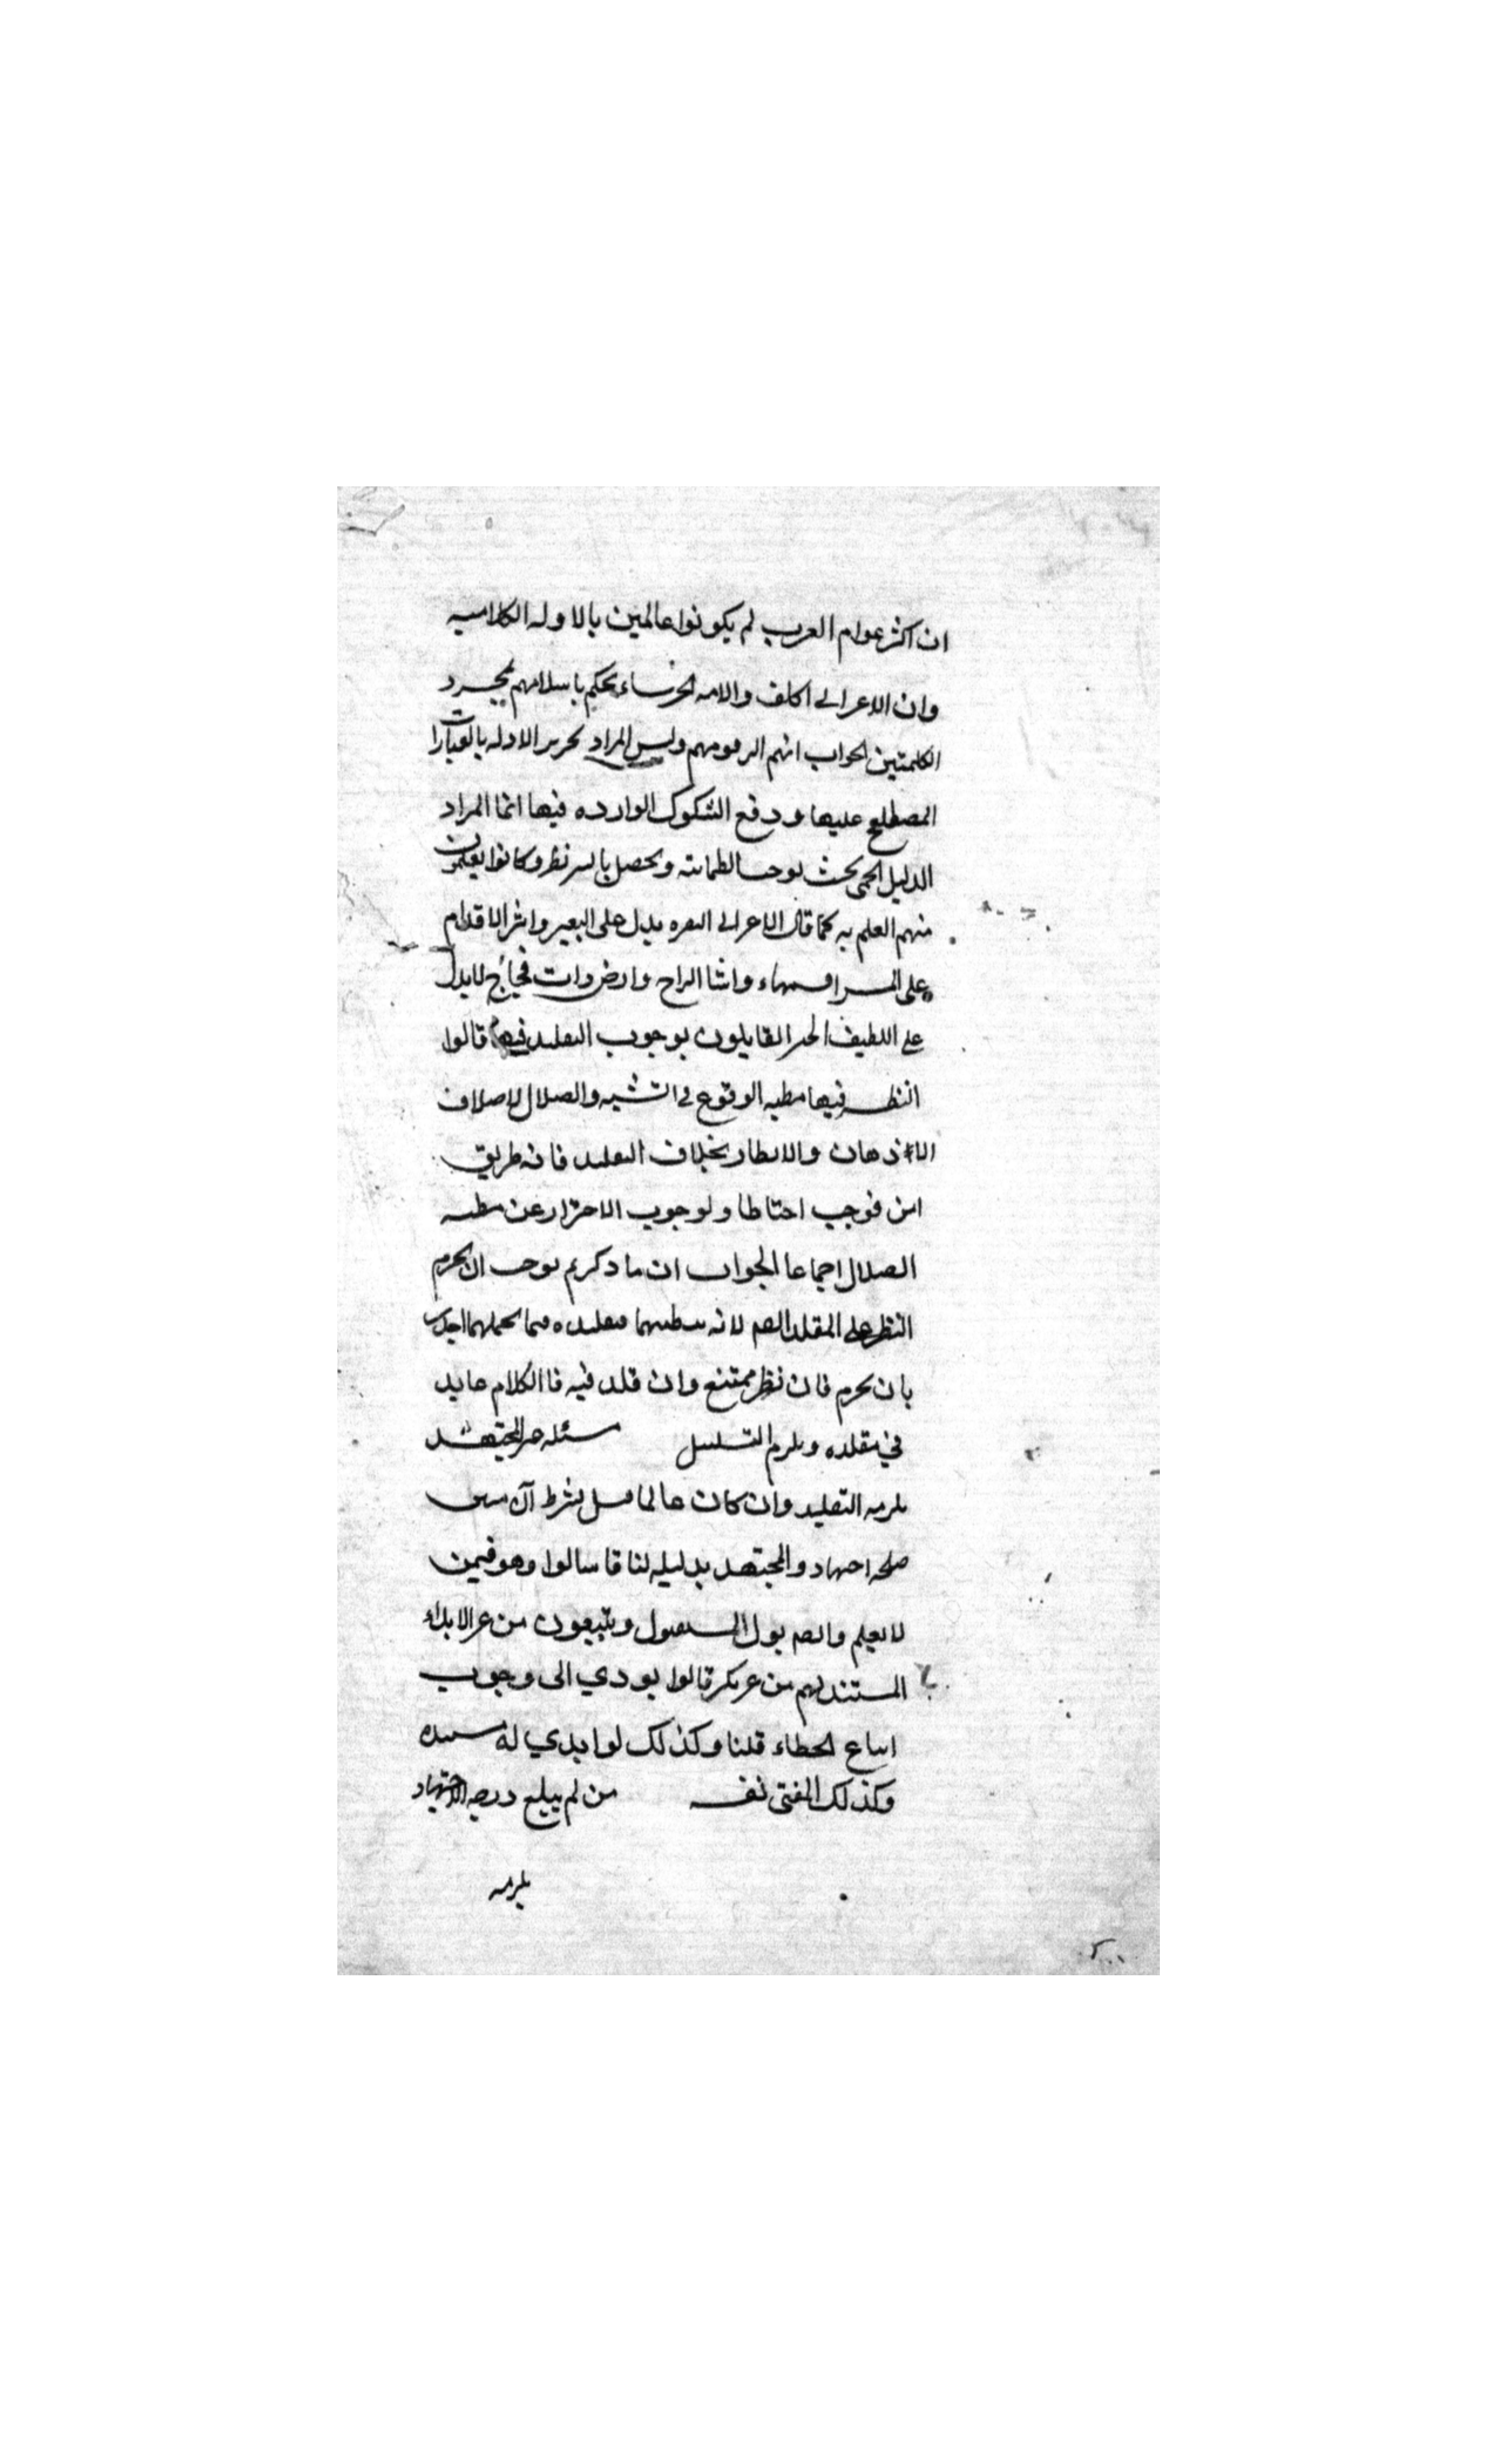 ان اكثر عوام العرب لم يكونوا عالمين بالادله الكلاميه
وان الاعرابي الجلف والامه الخرساء يحكم باسلامهم بمجرد
الكلمتين الجواب انهم الزموهم وليس المراد تحرير الادله بالعبارات
المصطلح عليها ودفع الشكوك الوارده فيها انما المراد
الدليل الجملي بحيث يوجب الطمانينه ويحصل بايسر نظر وكانوا يعلمون
منهم العلم به كما قال الاعرابي البعره يدل على البعير واثر الاقدام
على المسير افسماء وابراج وارض ذات فجاج لا يدل
على اللطيف الخبير القايلون بوجوب التقليد فيها قالوا
النظر فيها مظنه الوقوع في الشبه والضلال لاختلاف
الاذهان والانظار بخلاف التقليد فانه طريق
امن فوجب احتياطا ولوجوب الاحتراز عن مظنه
الضلال اجماعا الجواب ان ما ذكرتم يوجب ان يحرم
النظر على المقلد ايضا لانه مظنتهما فتقليده فيما يحتملهما اجدر
بان يحرم فان نظر ممتنع وان قلد فيه فالكلام عايد
في مقلده ويلزم التسلسل مسئله غير المجتهد
يلزمه التقليد وان كان عالما وقيل بشرط ان يتبين
صحه اجتهاد المجتهد بدليله لنا فاسالوا وهو فيمن
لا يعلم وايضا لم يزل المستفتون ويتبعون من غير ابداء
المستند لهم من غير نكير قالوا يودي الى وجوب
اتباع الخطاء قلنا وكذلك لو ابدي له مستنده
وكذلك المفتي نفسه من لم يبلغ درجه الاجتهاد
يلزمه